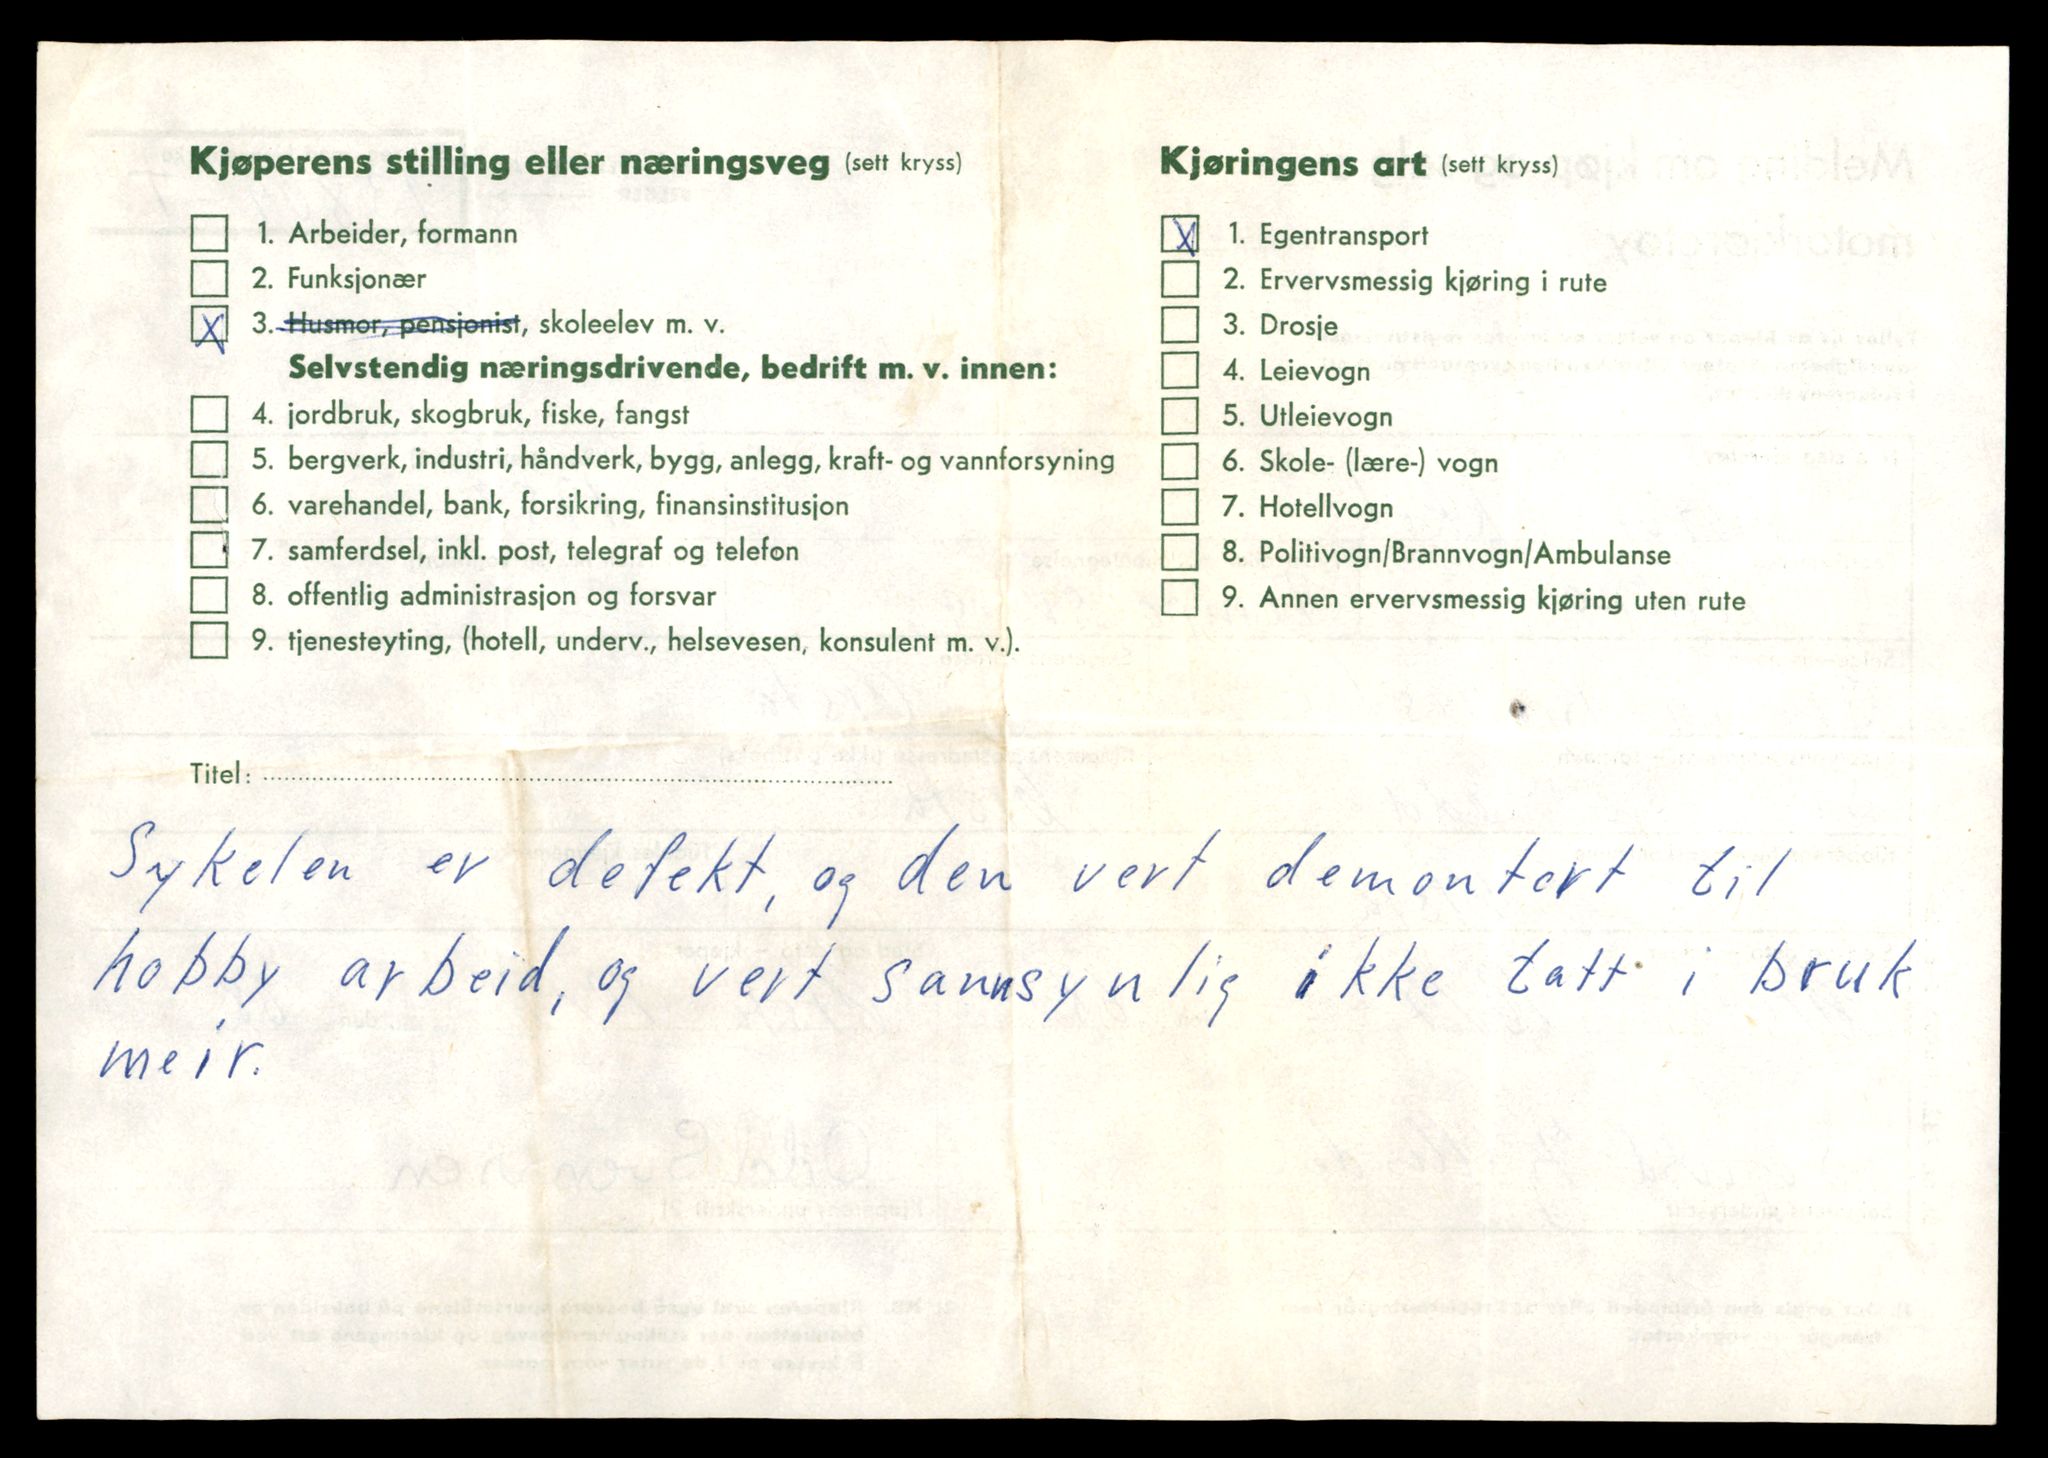 Kjøperens stilling eller næringsveg (sett kryss)
X 1. Arbeider, formann
2. Funksjonær
X 3. Husmor, pensjonist, skoleelev m. v.
Selvstendig næringsdrivende, bedrift m. v. innen:
4. jordbruk, skogbruk, fiske, fangst
5. bergverk, industri, håndverk, bygg, anlegg, kraft- og vannforsyning
6. varehandel, bank, forsikring, finansinstitusjon
7. samferdsel, inkl. post, telegraf og telefon
8. offentlig administrasjon og forsvar
9. tjenesteyting, (hotell, underv., helsevesen, konsulent m. v.).
Kjøringens art (sett kryss)
X 1. Egentransport
2. Ervervsmessig kjøring i rute
3. Drosje
4. Leievogn
5. Utleievogn
6. Skole- (lære-) vogn
7. Hotellvogn
8. Politivogn/Brannvogn/Ambulanse
9. Annen ervervsmessig kjøring uten rute
Titel:
Sykelen er defekt, og den vert demontert til
hobby arbeid, og vert sannsynlig ikke tatt i bruk
meir.